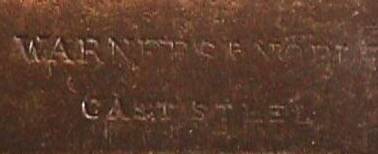 WARNER & NOBLE
CAST STEEL